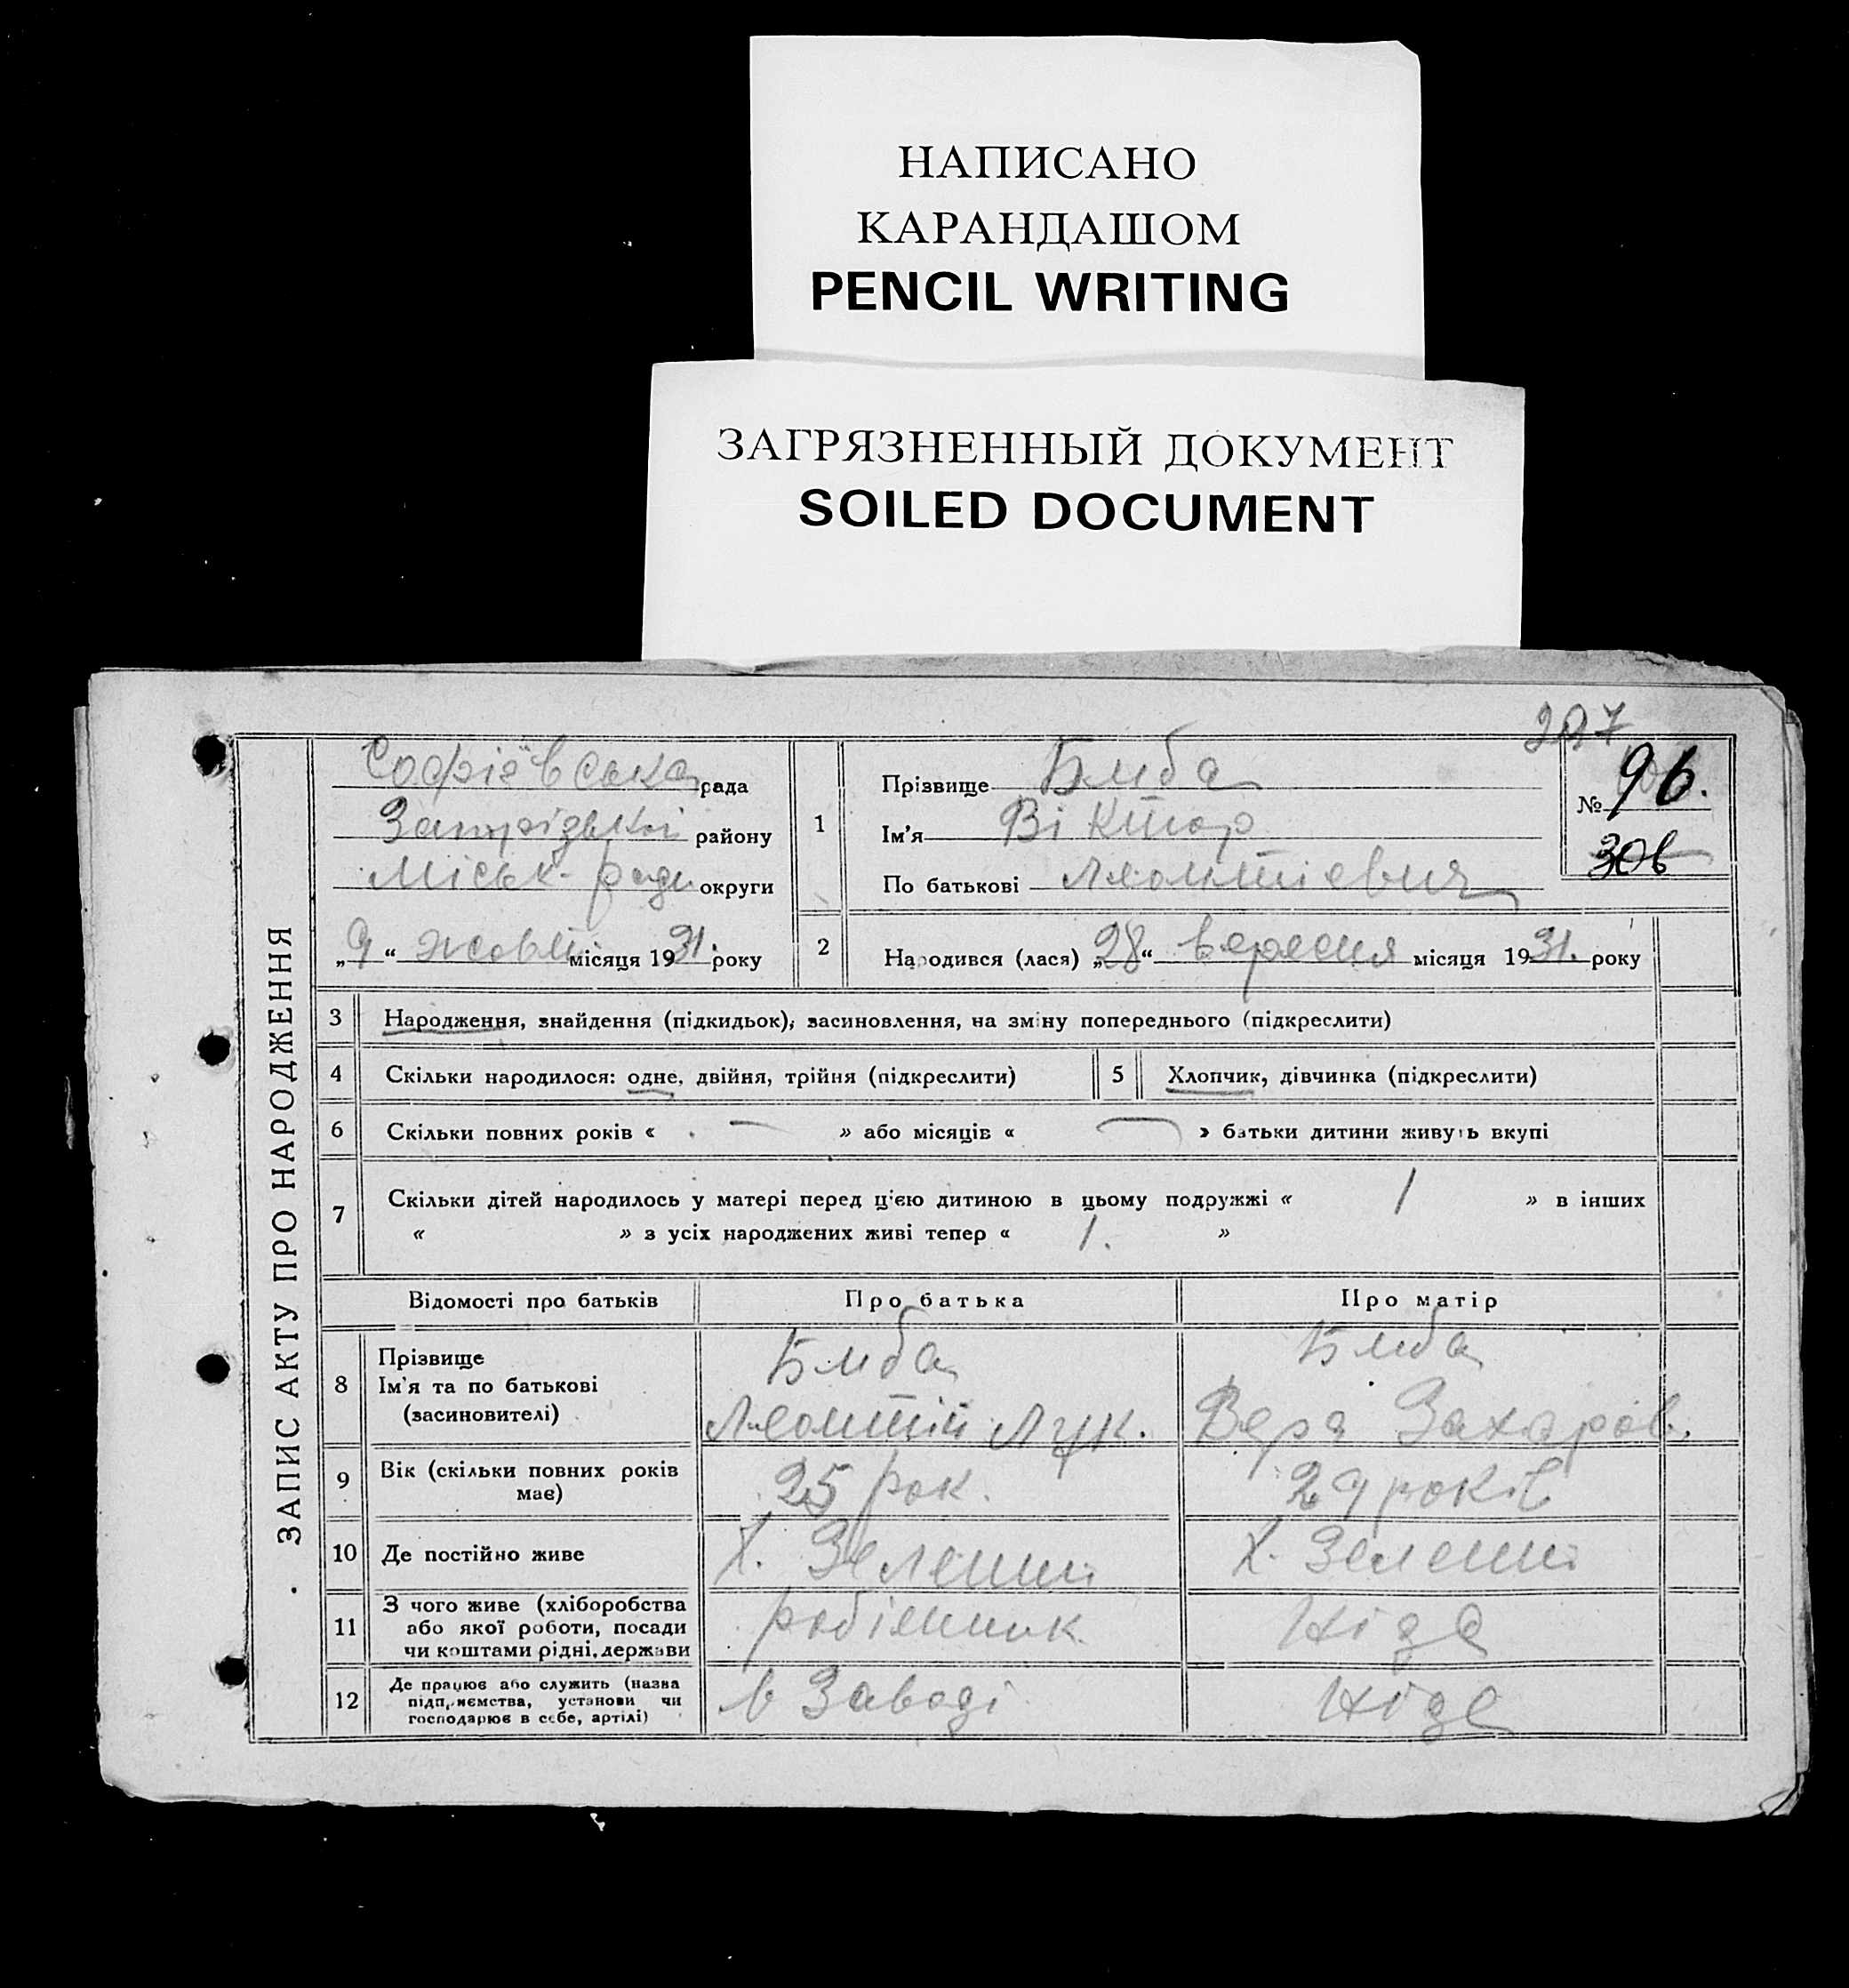 НАПИСАНО
КАРАНДАШОМ
PENCIL WRITING
ЗАГРЯЗНЕННЫЙ ДОКУМЕНТ
SOILED DOCUMENT
ЗАПИС АКТУ ПРО НАРОДЖЕННЯ
Софіївська рада
району
Міськ-ради округи
„9“ жовт. місяця 1931. року
1
Прізвище Бмба
Ім'я Віктор
По батькові Леонтієвич
№ 96.
306
2
Народився (лася) „28“ вересня місяця 1931. року
3 Народження, знайдення (підкидьок), засиновлення, на зміну попереднього (підкреслити)
4 Скільки народилося: одне, двійня, трійня (підкреслити) 5 Хлопчик, дівчинка (підкреслити)
6 Скільки повних років « — » або місяців « — » батьки дитини живуть вкупі
7 Скільки дітей народилось у матері перед цією дитиною в цьому подружжі « 1 » в інших
« » з усіх народжених живі тепер « 1. »
Відомості про батьків Про батька Про матір
8 Прізвище
Ім'я та по батькові
(засиновителі)
Бмба
Леонтій Лук.
Бмба
Вера Захаров.
9 Вік (скільки повних років
має)
25 рок.
29 років
10 Де постійно живе Х. Зелений Х. Зелений
11 З чого живе (хліборобства
або якої роботи, посади
чи коштами рідні, держави
робітник
Ніде
12 Де працює або служить (назва
підприємства, установи чи
господарює в себе, артілі)
в Заводі
Ніде